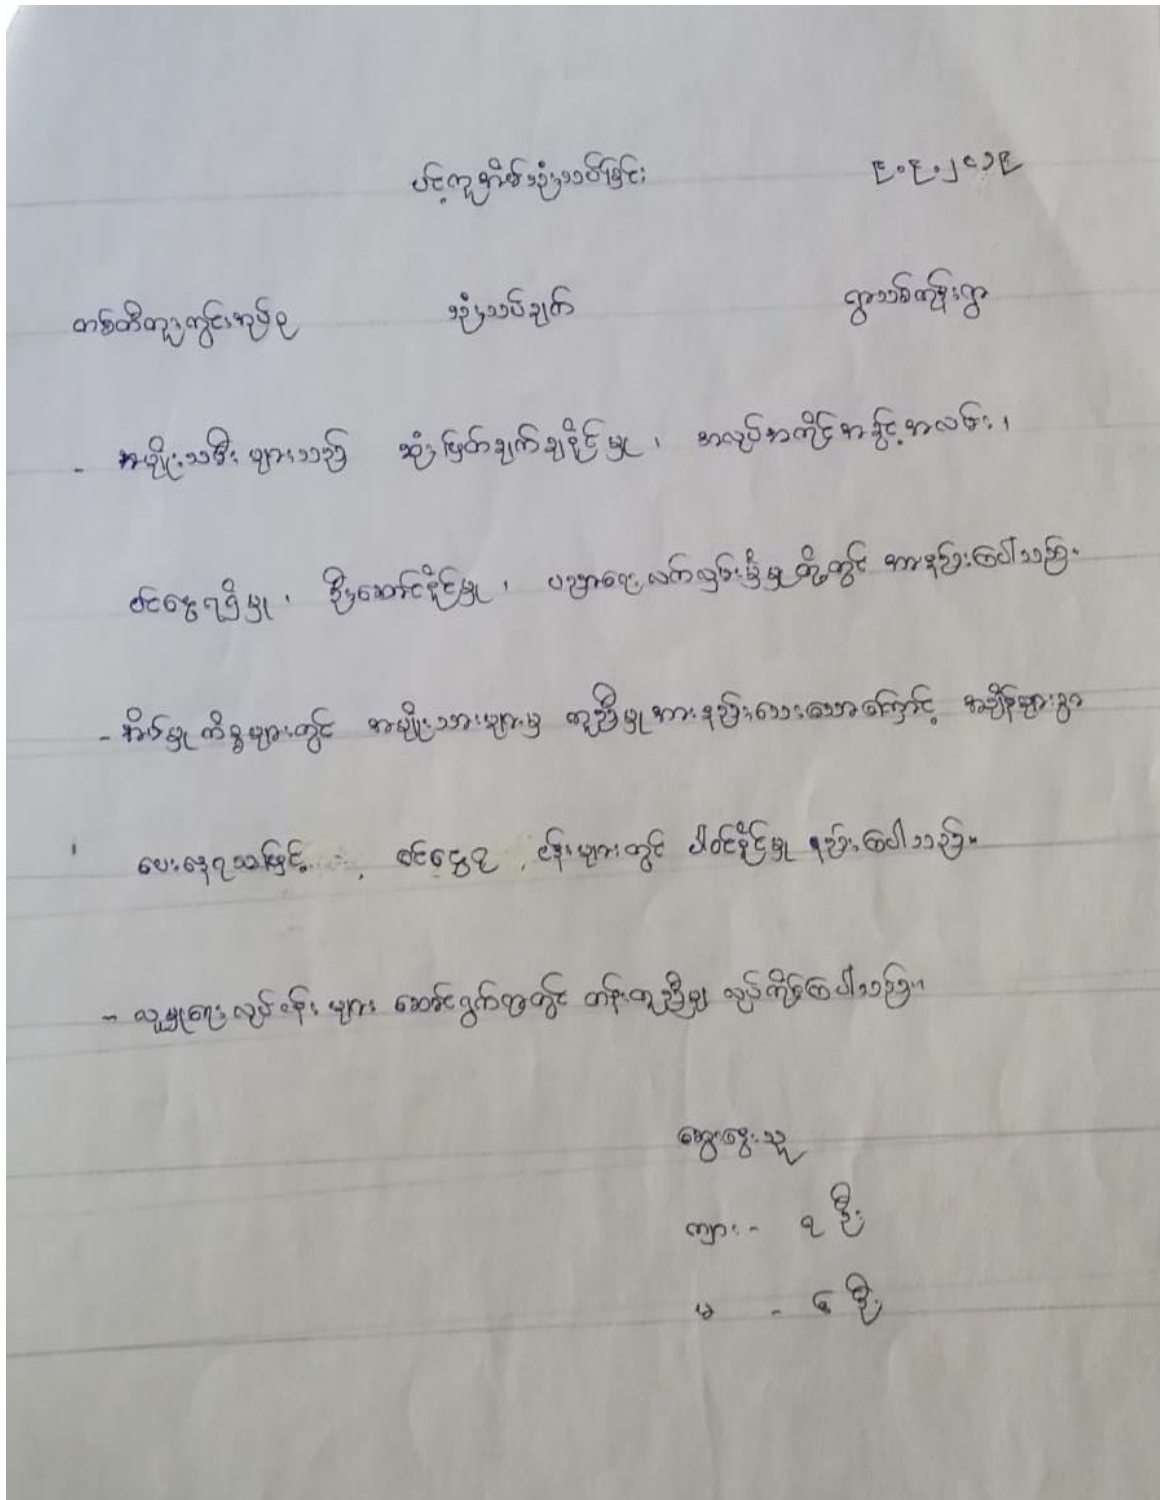 ပင့်ကူအိမ်သုံးသပ်ခြင်း ၉.၉.၂၀၁၉
တစ်ထီတူးတွင်းအုပ်စု သုံးသပ်ချက် ရွာသစ်ကုန်းရွာ
- အမျိုးသမီးများသည် ဆုံးဖြတ်ချက်ချနိုင်မှု ၊ အလုပ်အကိုင်အခွင့်အလမ်း ၊
ဝင်ငွေရရှိမှု ၊ ဦးဆောင်နိုင်မှု ၊ ပညာရေးလက်လှမ်းမှီမှုတို့တွင် အားနည်းကြပါသည်။
- အိမ်မှုကိစ္စများတွင် အမျိုးသားများမှ ကူညီမှုအားနည်းသေးသောကြောင့် အချိန်များစွာ
ပေးနေရသဖြင့် ဝင်ငွေရ ငန်းများတွင် ပါဝင်နိုင်မှု နည်းကြပါသည်။
- လူမှုရေးလုပ်ငန်းများ ဆောင်ရွက်ရာတွင် တန်းတူညီမျှ လုပ်ကိုင်ကြပါသည်။
ဆွေးနွေးသူ
ကျား - ၃ ဦး
မ - ၆ ဦး